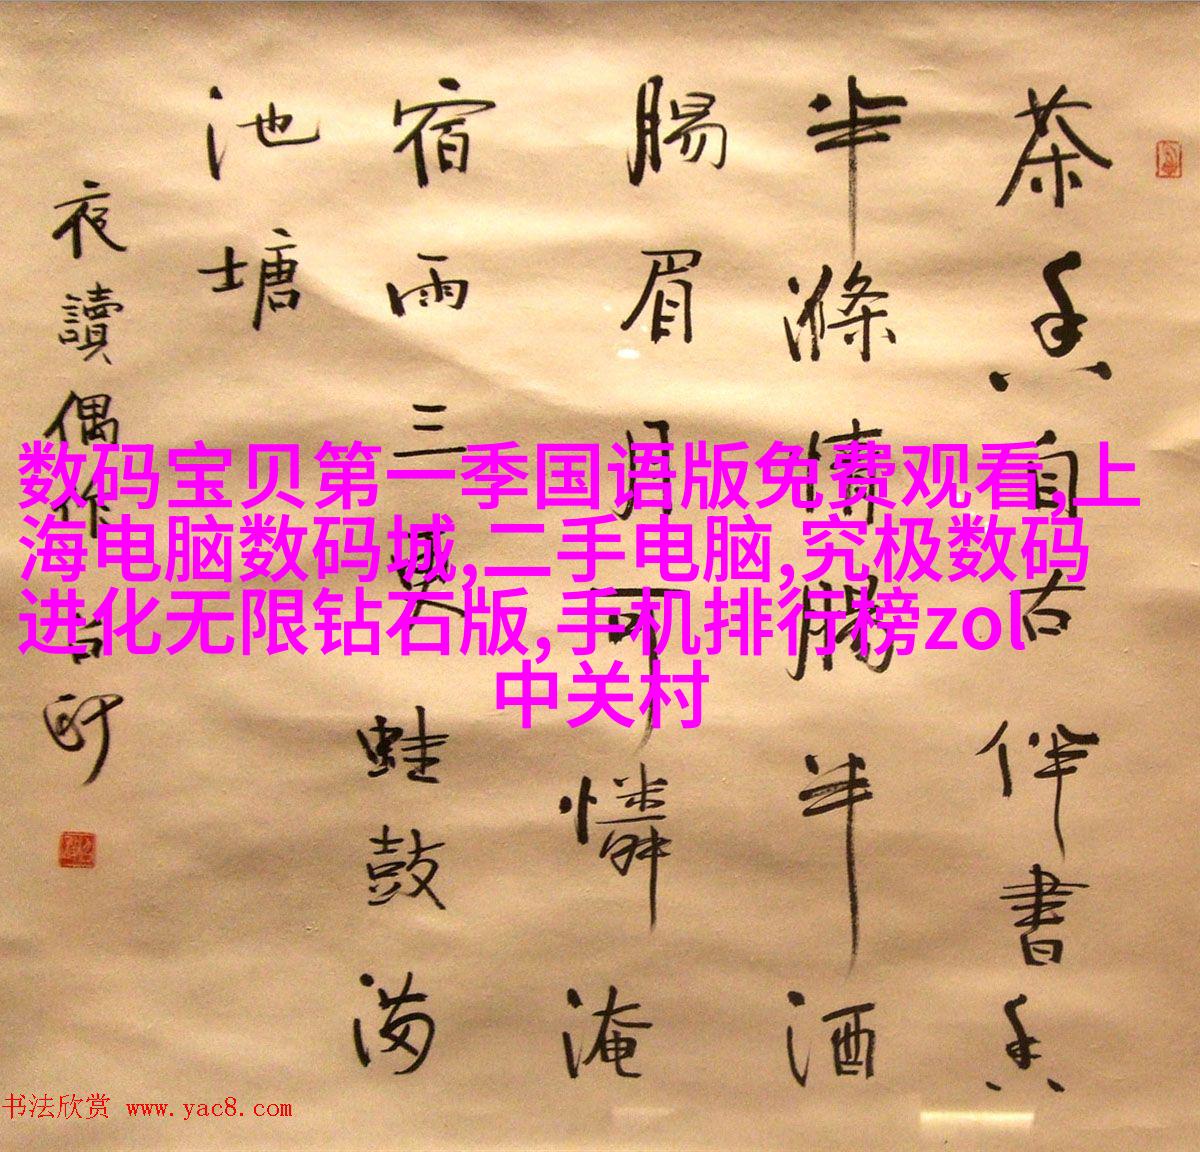 茶香自古伴書香
半滌情腸半酒
腸眉月可憐淹
宿雨三更蛙鼓滿
池塘
夜讀偶作
数码宝贝第一季国语版免费观看,上
海电脑数码城,二手电脑,究极数码
进化无限钻石版,手机排行榜zol
中关村
书法欣赏 www.yac8.com